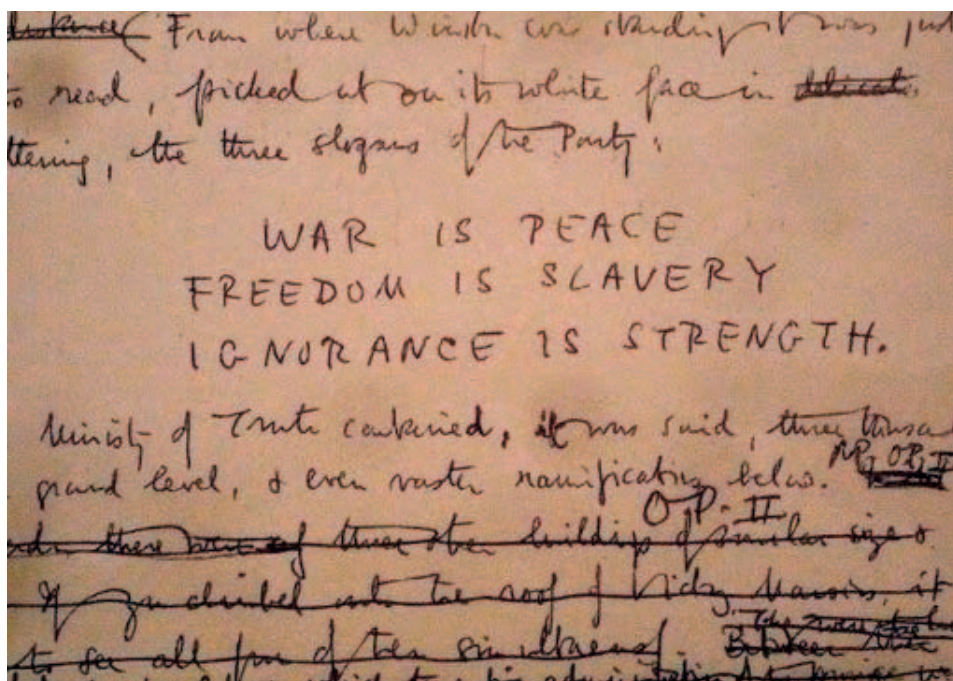 From where Winston was standing it was just
to read, picked out on its white face in
ttering, the three slogans of the Party:
WAR IS PEACE
FREEDOM IS SLAVERY
IGNORANCE IS STRENGTH.
Ministry of Truth contained, it was said, three thousa
ground level, & even vaster ramifications below.
O.P. II
there were three other buildings of similar size &
If you climbed onto the roof of Victory Mansions, it
to see all four of them simultaneously. Between